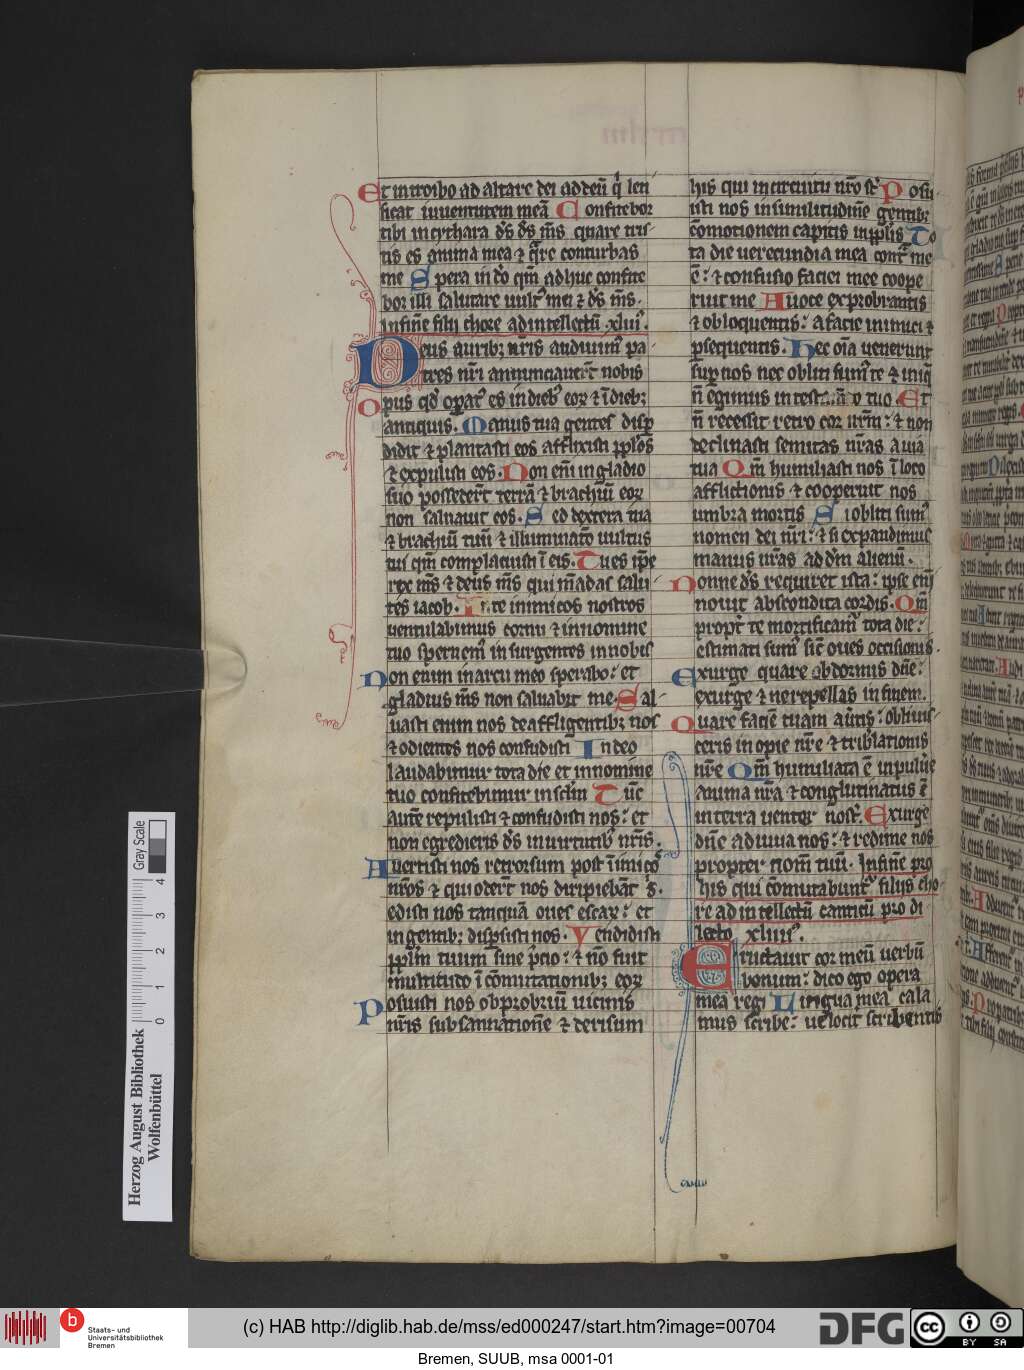 Et introibo ad altare dei ad deū q̄ leti
ficat iuuentutem meā Confitebor
tibi in cythara ds̄ ds̄ ms̄ quare tris
tis es anima mea ⁊ qͣre conturbas
me Spera in dō qm̄ adhuc confite
bor illi salutare uultꝰ mei ⁊ ds̄ ms̄.
Infinē filij chore ad intellectū .xliii.
Deus auribꝫ nr̄is audiuimꝰ pa
tres nr̄i annunciauerūt nobis
Opus qd̄ opatꝰ es in diebꝰ eoꝝ ⁊ ī diebꝫ
antiquis. Manus tua gentes disp̄
didit ⁊ plantasti eos afflixisti pp̄los
⁊ expulisti eos. Non eni in gladio
suo possederūt terrā ⁊ brachiū eoꝝ
non saluauit eos. Sed dextera tua
⁊ brachiū tuū ⁊ illuminatō uultus
tui qm̄ complacuisti ī eis. Tu es ip̄e
rex ms̄ ⁊ deus ms̄ qui mādas salu
tes iacob. In te inimicos nostros
uentilabimus cornu ⁊ in nomine
tuo spernemꝰ insurgentes in nobis
Non enim in arcu meo sperabo: et
gladius ms̄ non saluabit me. Sal
uasti enim nos de affligentibꝫ nos
⁊ odientes nos confudisti In deo
laudabimur tota die et in nomine
tuo confitebimur in sc̄lm Tūc
autē repulisti ⁊ confudisti nos: et
non egredieris ds̄ in uirtutibꝰ nr̄is.
Auertisti nos retrorsum post īimicos
nr̄os ⁊ qui oderūt nos diripiebāt s̄.
edisti nos tanquā oues escaꝝ: et
in gentibꝫ disp̄sisti nos. Vendidisti
pp̄lm tuum sine p̄cio: ⁊ nō fuit
multitudo ī cōmutationibꝫ eoꝝ
Posuisti nos obprobriū uicinis
nr̄is subsannationē ⁊ derisum
his qui in circuitu nr̄o st̄ Posu
isti nos in similitudinē gentibꝫ
cōmotionem capitis in pp̄lis To
ta die uerecundia mea contᷓ me
ē: ⁊ confusio faciei mee coope
ruit me A uoce exprobrantis
⁊ obloquentis: a facie inimici ⁊
p̄sequentis. Hec oīa uenerunt
sup̄ nos nec obliti sumꝰ te ⁊ iniq̄
n̄ egimus in test o tuo Et
n̄ recessit retro cor nr̄m: ⁊ non
declinasti semitas nr̄as a uia
tua Qm̄ humiliasti nos ī loco
afflictionis ⁊ cooperuit nos
umbra mortis Si obliti sumꝰ
nomen dei nr̄i: ⁊ si expandimus
manus nr̄as ad dm̄ alienū.
Nonne ds̄ requiret ista: ipse eni
nouit abscondita cordis. Qm̄
propt̄ te mortificamꝰ tota die:
estimati sumꝰ sic̄ oues occisionis.
Exurge quare obdormis dn̄e:
exurge ⁊ ne repellas in finem.
Quare faciē tuam au̇tis: obliuis
ceris inopie nr̄e ⁊ tribulationis
nr̄e Qm̄ humiliata ē in puluēe
anima nr̄a ⁊ conglutinatus ē
in terra uenter nostꝰ. Exurge
dn̄e adiuua nos: ⁊ redime nos
propter nomē tuū. Infinē pro
his qui cōmutabuntᷣ filijs cho
re ad intellectū canticū pro di
lecto xliiii.
Eructauit cor meū uerbū
bonum: dico ego opera
mea regi Lingua mea cala
mus scribe: uelocit̄ scribentis
Herzog August Bibliothek
Wolfenbüttel
Gray Scale
0 1 2 3 4
b Staats- und
Universitätsbibliothek
Bremen
(c) HAB http://diglib.hab.de/mss/ed000247/start.htm?image=00704
DFG
cc BY SA
Bremen, SUUB, msa 0001-01